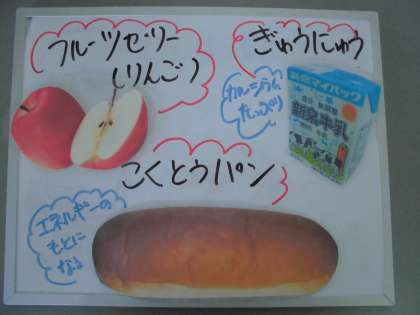 フルーツゼリー
(りんご)
ぎゅうにゅう
カルシウム
たっぷり
新泉マイパック
こくとうパン
エネルギーの
もとに
なる